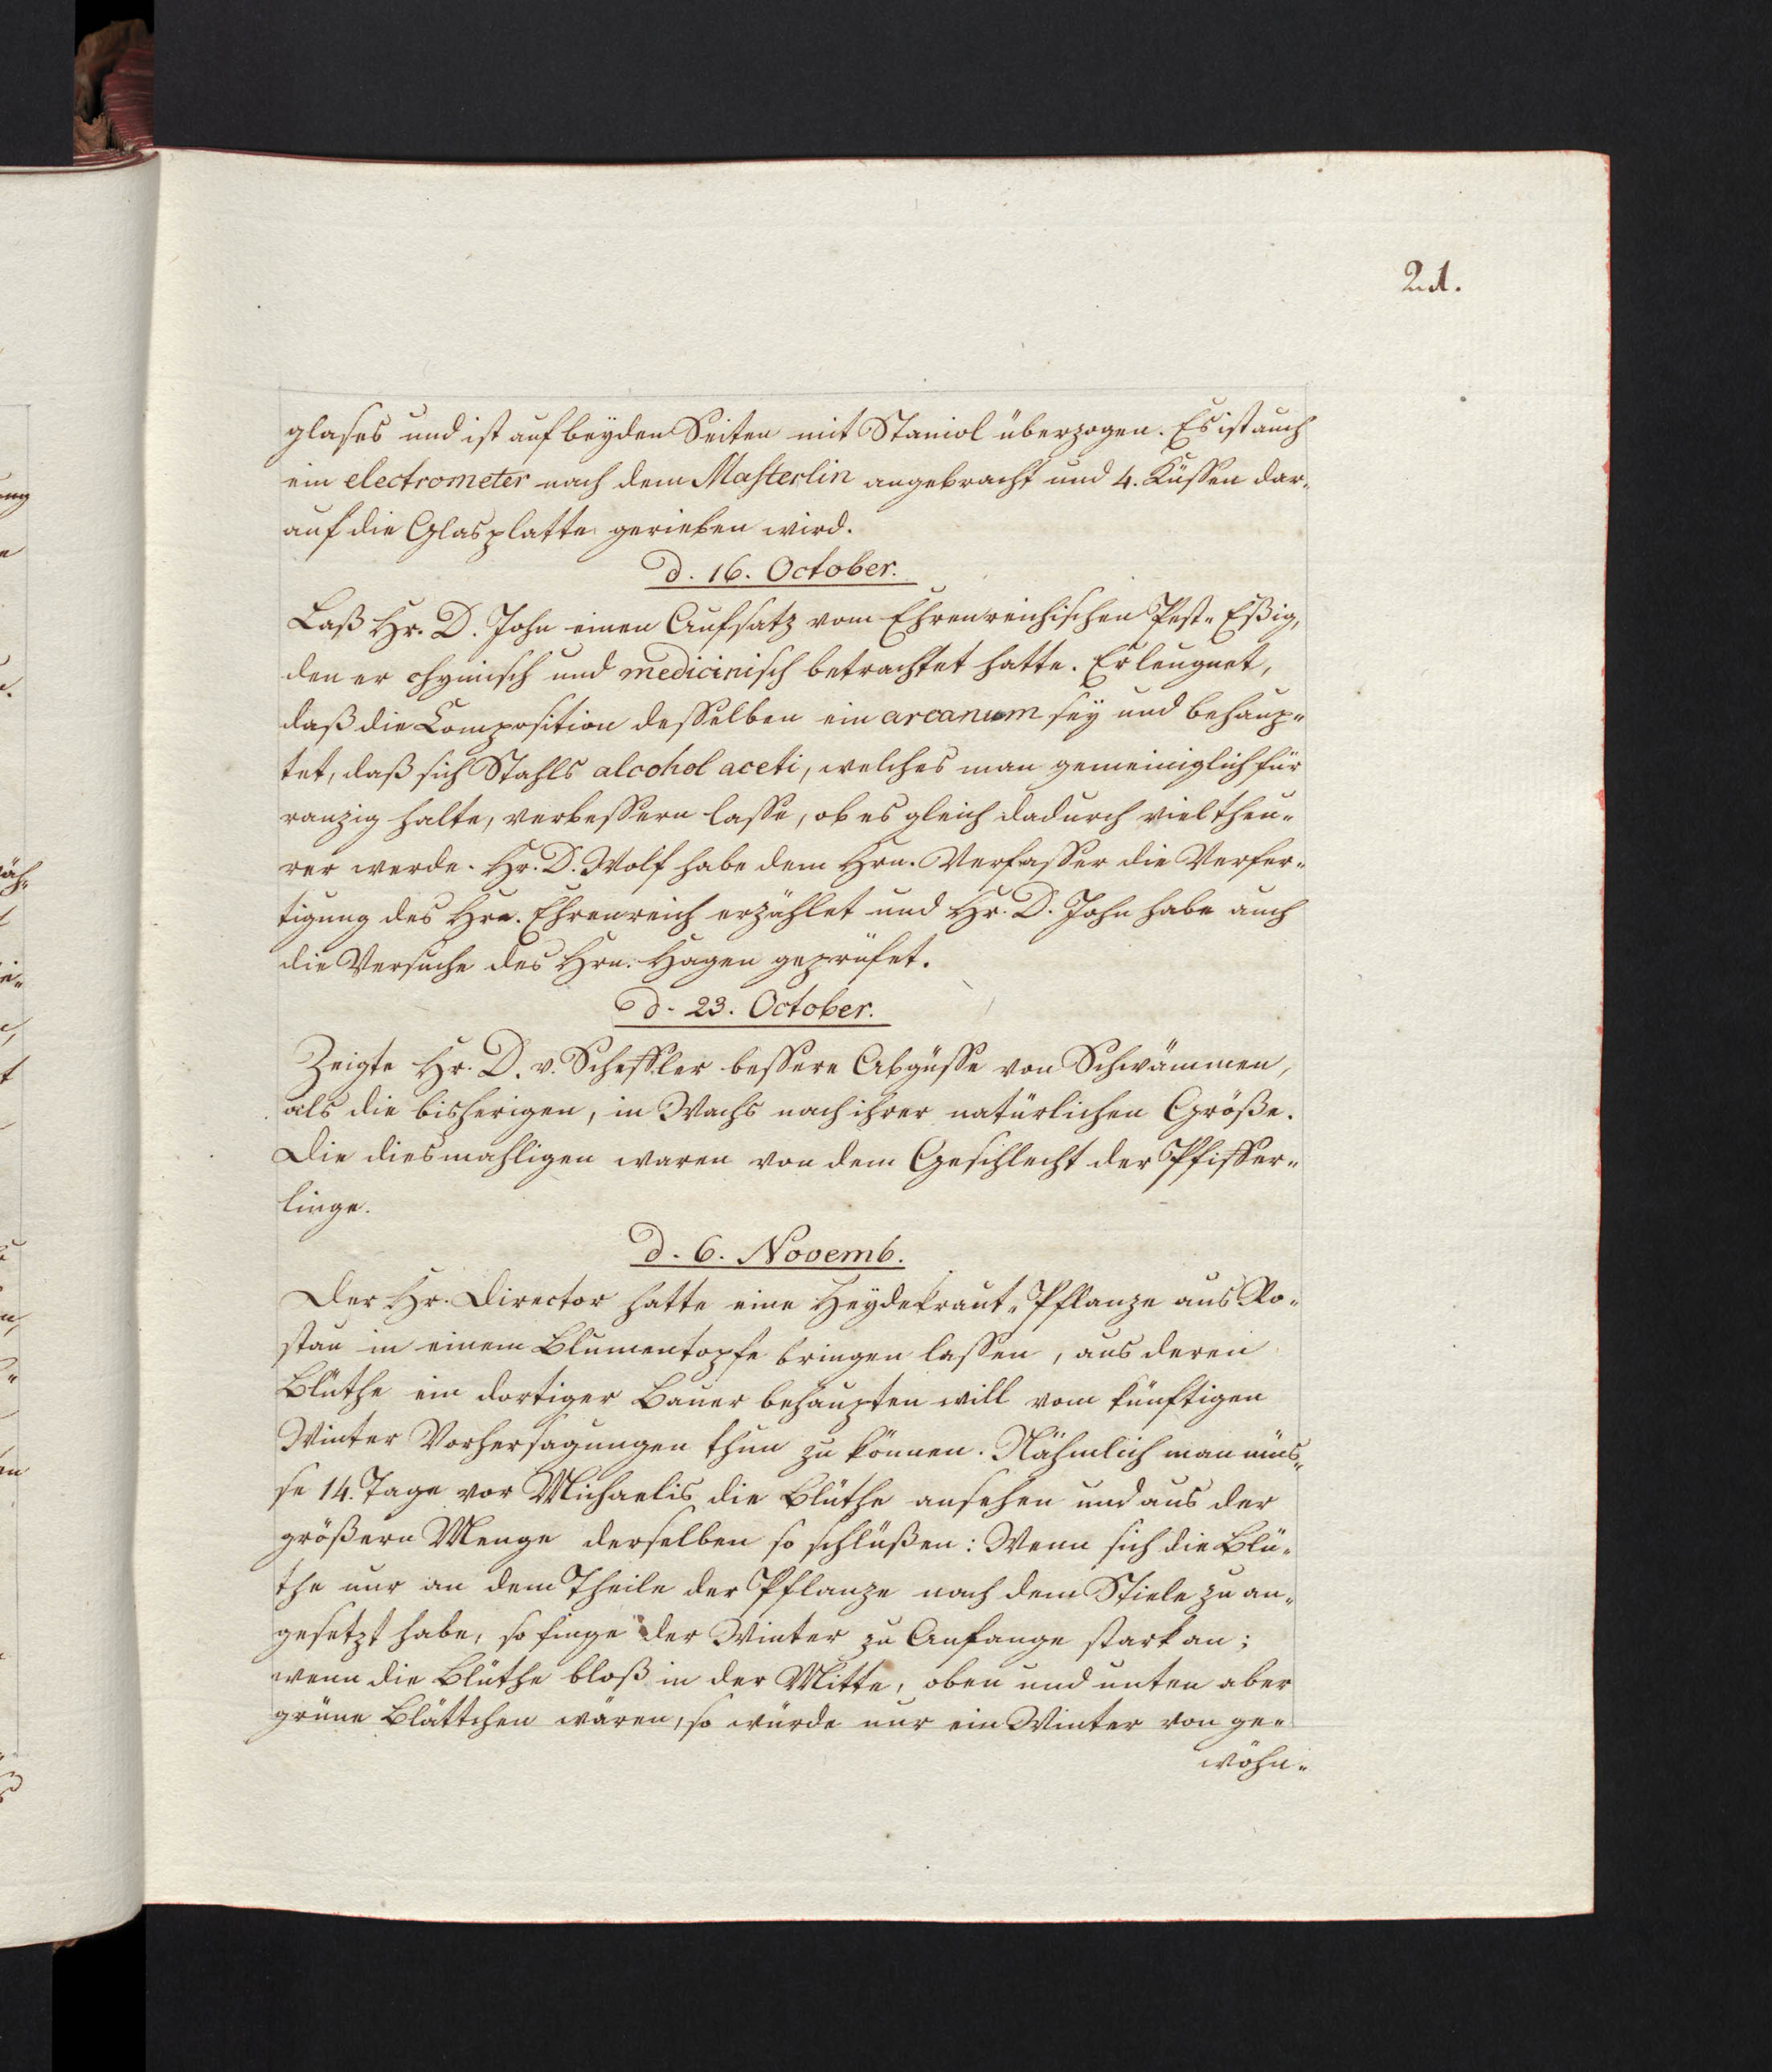 21.
glases und ist auf beyden Seiten mit Staniol überzogen. Es ist auch
ein electrometer nach dem Masterlin angebracht und 4. Küssen dar-
auf die Glasplatte gerieben wird.
d. 16. October.
Laß Hr. D. John einen Aufsatz vom Ehrenreichischen Pest-Eßig,
den er chymisch und medicinisch betrachtet hatte. Er leugnet,
daß die Composition desselben ein arcanum sey und behaup-
tet, daß sich Stahls alcohol aceti, welches man gemeiniglich für
ranzig halte, verbessern lasse, ob es gleich dadurch viel theu-
rer werde. Hr. D. Wolf habe dem Hrn. Verfasser die Verfer-
tigung des Hrn. Ehrenreich erzählet und Hr. D. John habe auch
die Versuche des Hrn. Hagen geprüfet.
d. 23. October.
Zeigte Hr. D. v. Scheffler bessere Abgüsse von Schwämmen,
als die bisherigen, in Wachs nach ihrer natürlichen Größe.
Die diesmahligen waren von dem Geschlecht der Pfiffer-
linge.
d. 6. Novemb.
Der Hr. Director hatte eine Heydekraut-Pflanze aus Ro-
stau in einem Blumentopfe bringen lassen, aus deren
Blüthe ein dortiger Bauer behaupten will vom künftigen
Winter Vorhersagungen thun zu können. Nähmlich man müs-
se 14. Tage vor Michaelis die Blüthe ansehen und aus der
größern Menge derselben so schlüßen: Wenn sich die Blü-
the nur an dem Theile der Pflanze nach dem Stiele zu an-
gesetzt habe, so finge der Winter zu Anfange stark an;
wenn die Blüthe bloß in der Mitte, oben und unten aber
grüne Blättchen wären, so würde nur ein Winter von ge-
wöhn-